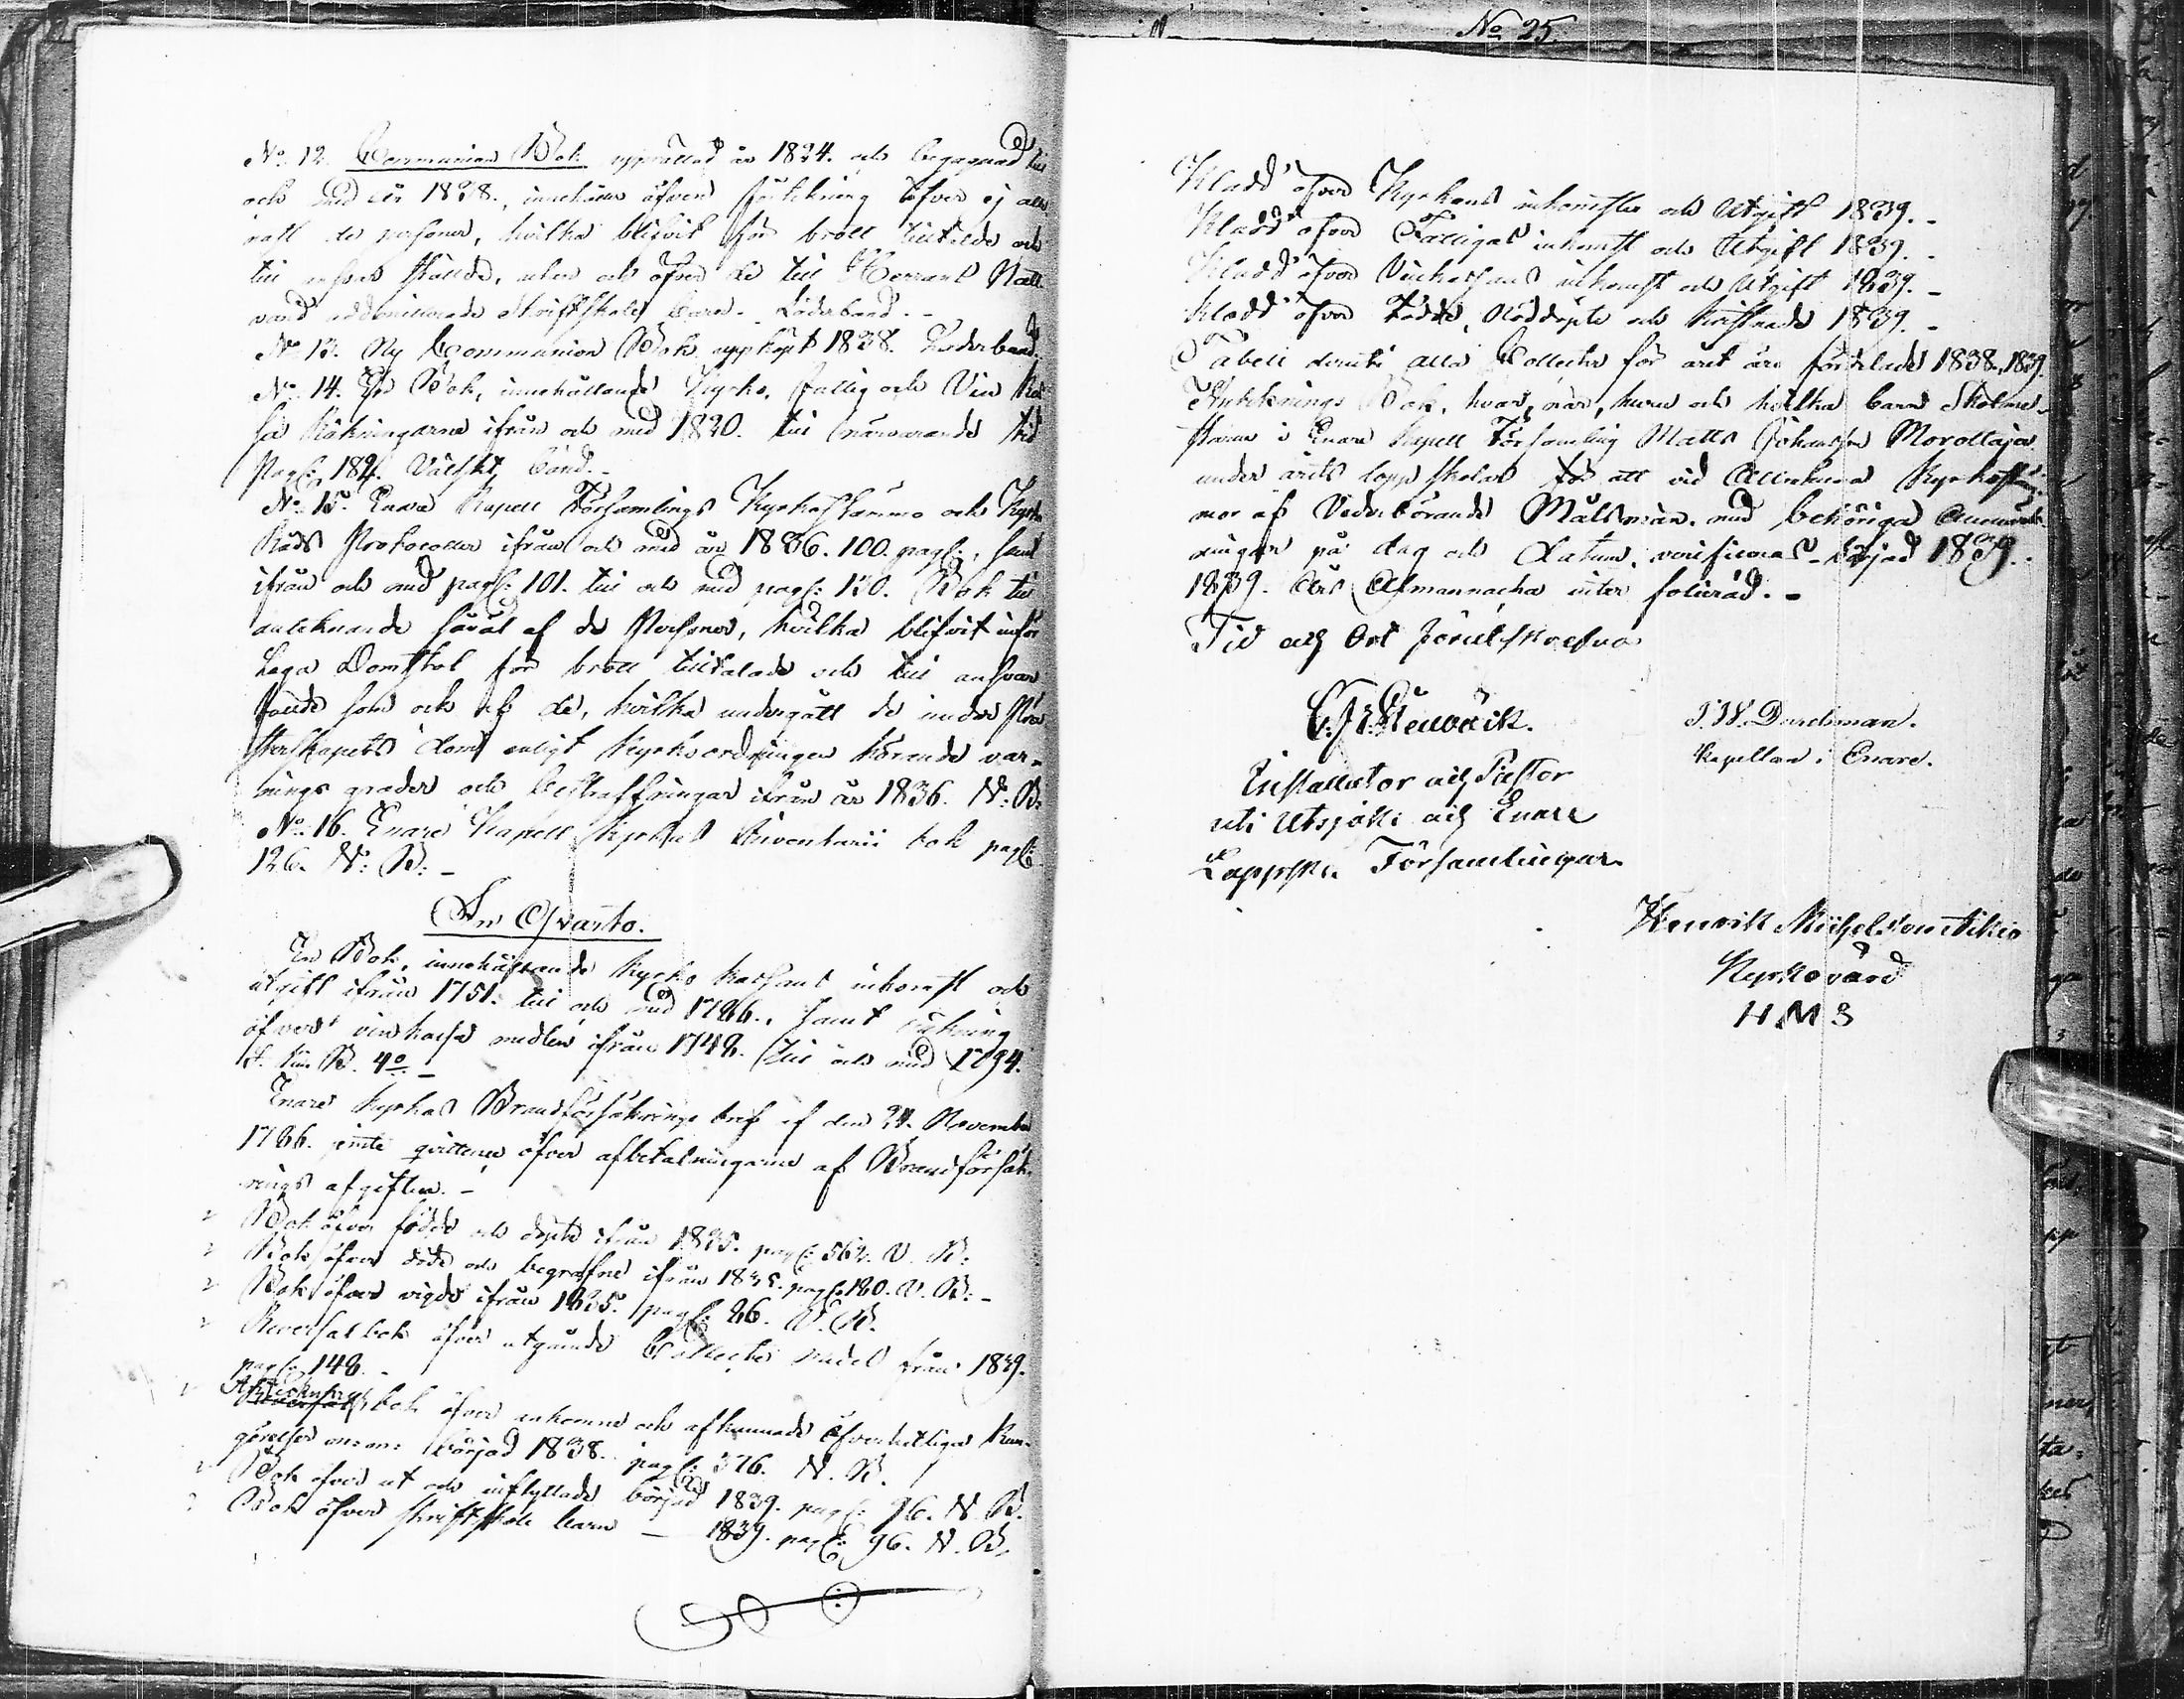 No 25.
No. 12. Communion Bok upprättad år 1824. och begagnad till
och med år 1838., innehåller äfven förtekning öfver ej alle-
nast de personer, hvilka blifvit för brott tilltalde och
till ansvar fällde, utan och öfver de till Herrans Natt-
vard admitterade Skriftskole barn. Läderband. -
No 13. Ny Communion Bok uppköpt 1838. Läderband.
No. 14. En Bok, innehållande Kyrko, Fattig och Vin Kas-
sa Räkningarna ifrån och med 1820. till närvarande tid
pag: 184. Välskt band. -
No. 15. Enare Kapell Församlings Kyrkostämmo och Kyrko
Råds Protocoller ifrån och med år 1836. 100. pag:, samt
ifrån och med pag: 101. till och med pag: 130. Bok till
anteknande såväl af de Personer, hvilka blifvit inför
Laga Domstol för brott tilltalade och till ansvar
fällde som och af de, hvilka undergått de under
dom enligt Kyrkoordningen hörande var-
nings grader och bestraffningar ifrån år 1836. N: B:
No. 16. Enare Kapell Kyrkas Inventarii bok pag:
126. N: B: -
In Qvarto.
En Bok, innehållande Kyrko Kassans inkomst och
utgift ifrån 1751. till och med 1786., samt räkning
öfver vin kassa medlen ifrån 1748. till och med 1794.
B. 4o. -
Enare Kyrkas Brandförsäkrings bref af den 21. November
1786. jemte qvittencer öfver afbetalningarne af Brandförsäk-
rings afgiften. -
Bok öfver födde och döpte ifrån 1835. pag: 562. N. B:
Bok öfver döde och begrafne ifrån 1835. pag: 180. N. B: -
Bok öfver vigde ifrån 1835. pag: 86. N. B.
Reversal bok öfver utgående Collecter medel från 1839.
pag: 148. -
bok öfver ankomne och afkunnade öfverhetliga Kun-
görelser m: m: börjad 1838. pag: 376. N. B.
Bok öfver ut och inflyttade börjad 1839. pag: 96. N. B.
Bok öfver skriftskole barn — 1839. pag: 96. N. B.
Kladd öfver Kyrkans inkomster och Utgift 1839. -
Kladd öfver Fattigas inkomst och Utgift 1839. -
Kladd öfver Vinkassans inkomst och Utgift 1839. -
Kladd öfver Födde, Nöddöpte och Kristnade 1839. -
Tabell deruti alla Collecter för året äro förtelade 1838, 1839.
Antecknings Bok, hvar, när, huru och hvilka barn Skolmä-
staren i Enare Kapell Församling Matts Johansson Morottaja
under årets lopp skolat för att vid Allmänna Kyrkostäm-
mor af Vederbörande Målsmän, med behöriga
ningar på dag och Datum, verificeras - börjad 1839.
1839. års Almannacha inter folierad. -
Tid och Ort förutskrefna
Installator och Pastor
uti Utsjoki och Enare
Lappska Församlingar.
J. W. Durchman.
Kapellan i Enare.
Henrik Michelsson Aikio
Kyrkovärd
H M S